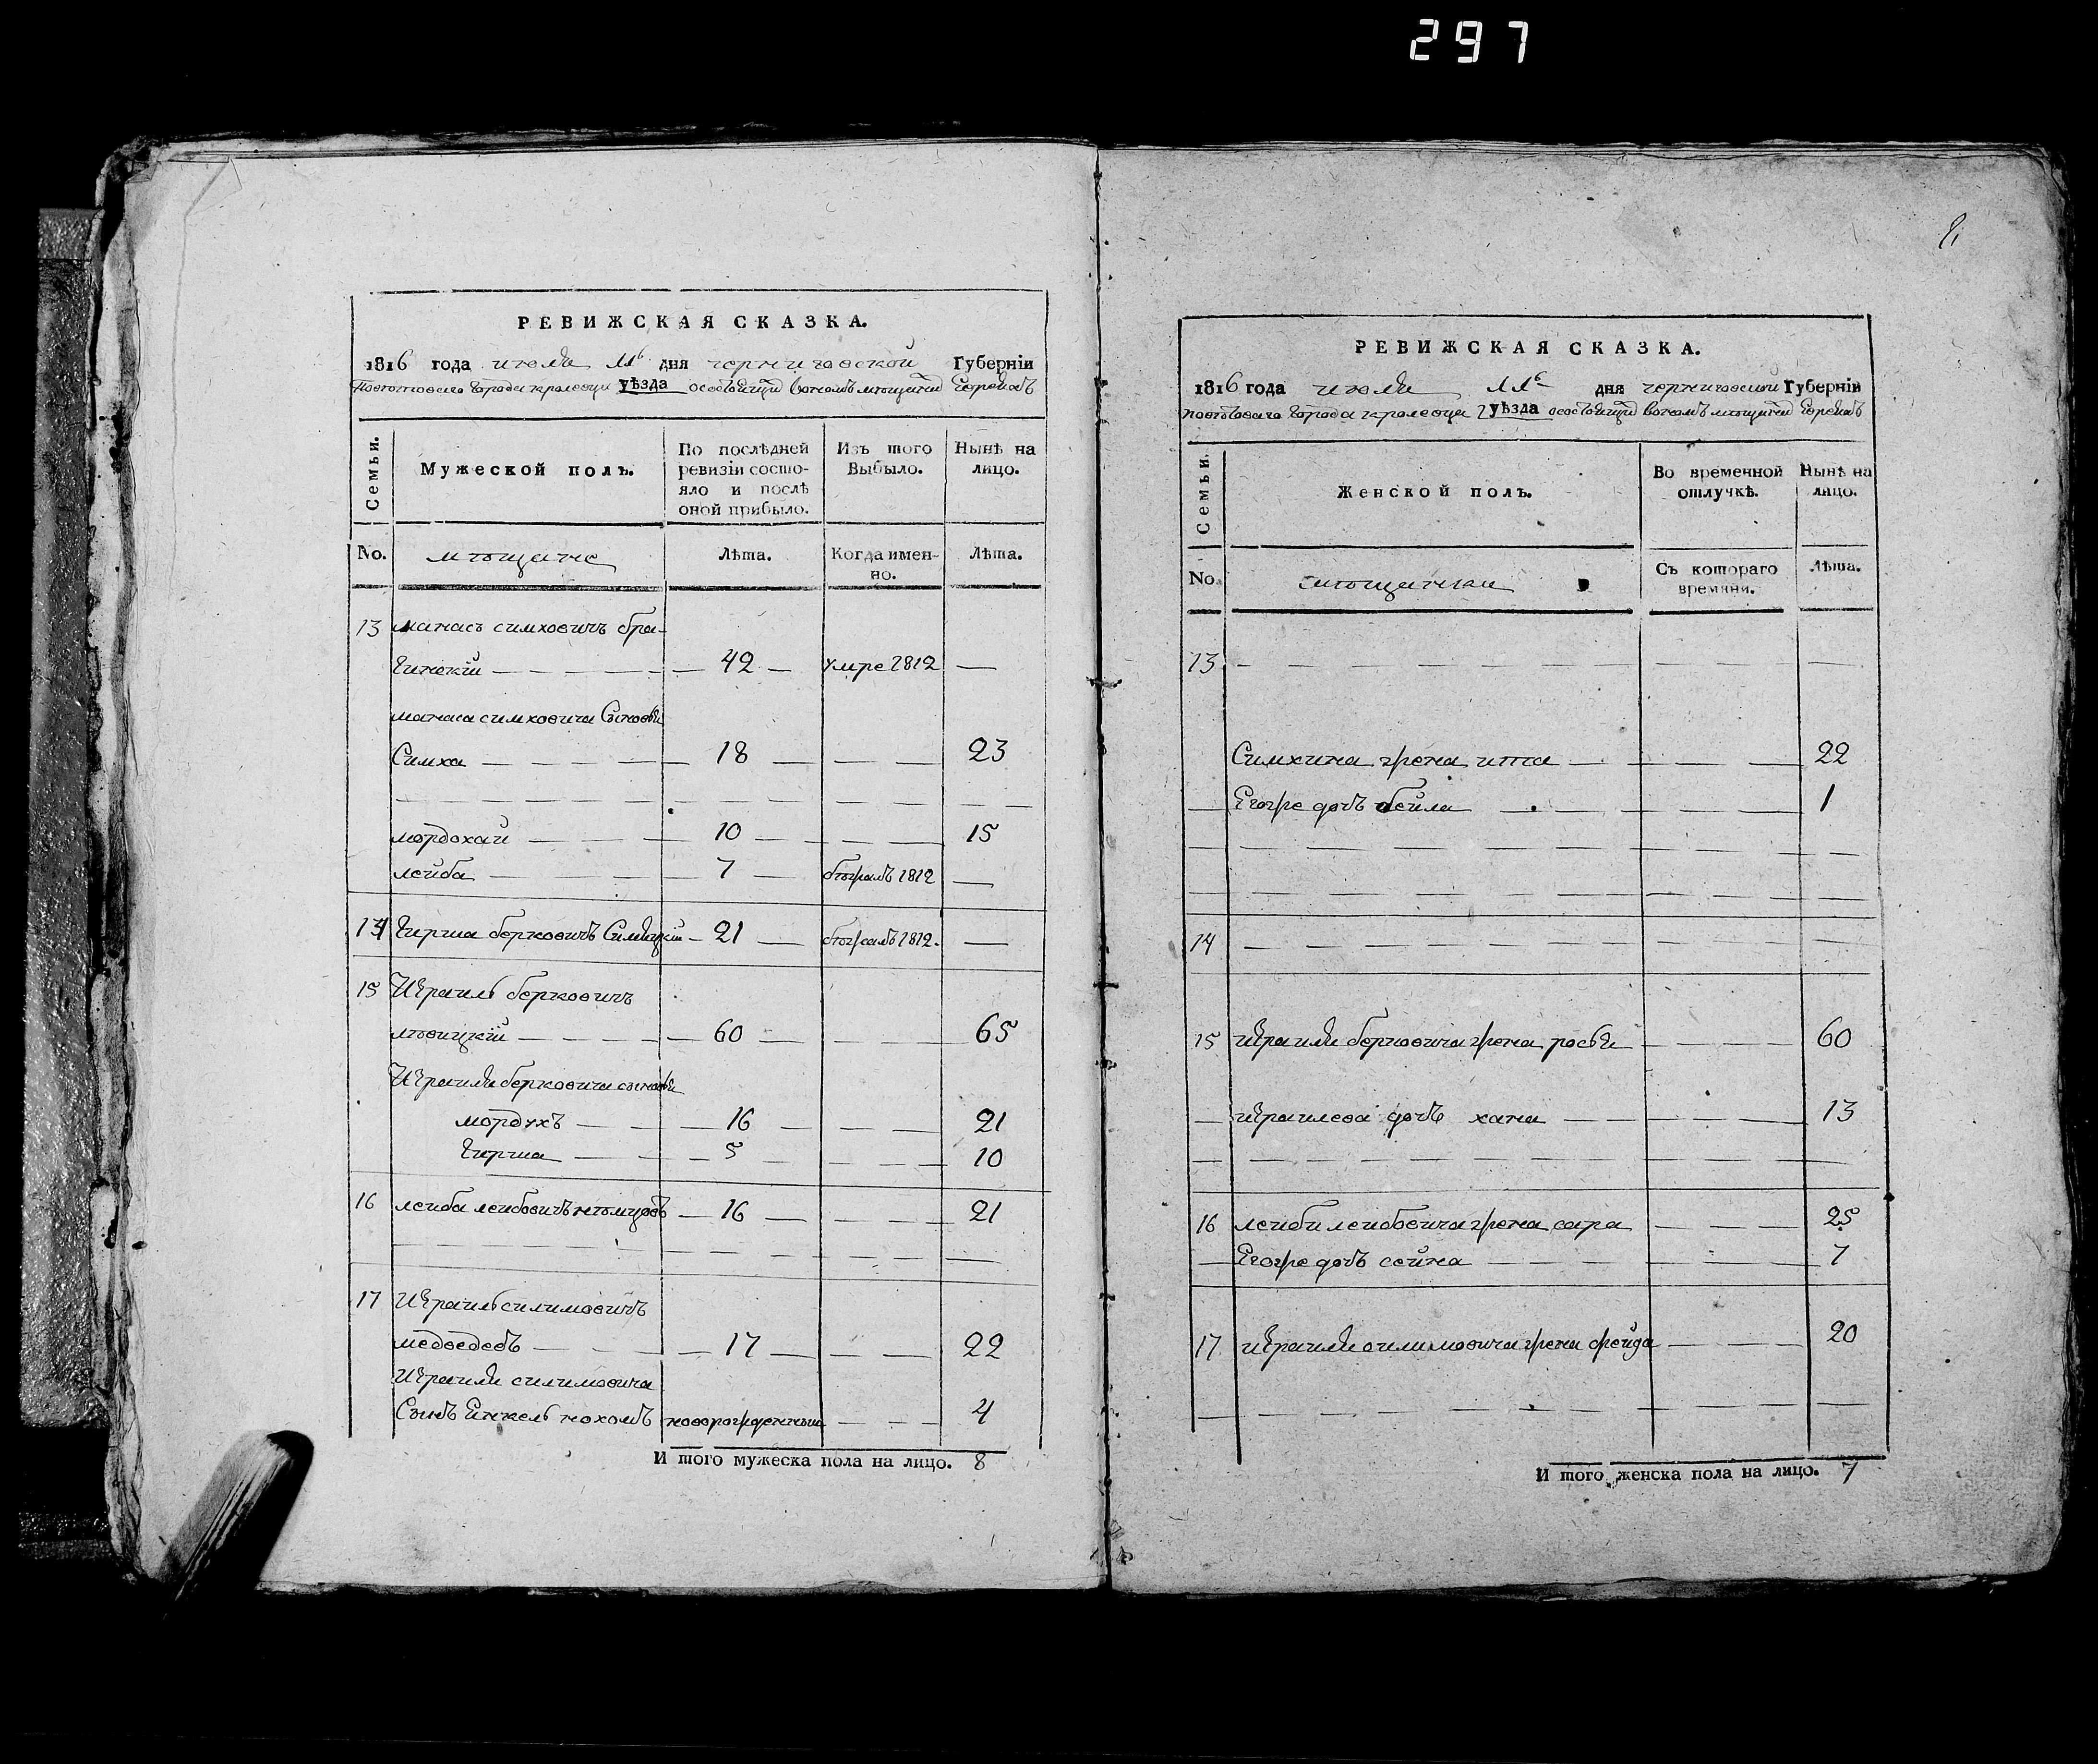 297
РЕВИЖСКАЯ СКАЗКА.
1816 года июля 11 дня черниговской Губерніи
поветового города кролевца уѣзда о состоящихъ в ономъ мѣщанъ евреяхъ
Семьи.
Мужеской полъ.
По послѣдней ревизіи состояло и послѣ оной прибыло.
Изъ того Выбыло.
Нынѣ на лицо.
No.
мѣщане
Лѣта.
Когда именно.
Лѣта.
13 манасъ симховичъ бра-
гинскій 42 умре 1812
манаса симховича Сыновья
Симха 18 23
мордохай 10 15
лейба 7 бѣжалъ 1812
14 Гирша берковичъ 21 бѣжалъ 1812.
15 Израиль берковичъ
60 65
Израиля берковича сыновья
мордухъ 16 21
Гирша 5 10
16 лейба лейбовичъ 16 21
17 Израиль силимовичъ
медведевъ 17 22
Израиля силимовича
Сынъ Енкель нохомъ новорожденный 4
И того мужеска пола на лицо. 8
РЕВИЖСКАЯ СКАЗКА.
1816 года июля 11 дня черниговской Губерніи
поветового города кролевца уѣзда о состоящихъ в ономъ мѣщанъ евреяхъ
Семьи.
Женской полъ.
Во временной отлучкѣ.
Нынѣ на лицо.
No.
мѣщанки
Съ котораго времяни.
Лѣта.
13
Симхина жена ита 22
Его же дочь бейла 1
14
15 израиля берковича жена 60
израилева дочь хана 13
16 лейби лейбовича жена сара 25
Его же дочь сейна 7
17 израиля силимовича жена фрейда 20
И того женска пола на лицо. 7